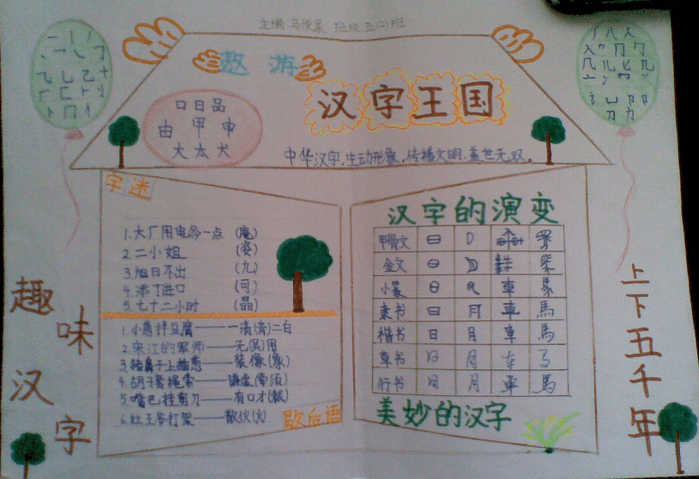 主编:马俊 班级:五(2)班
遨 游
汉字王国
口日品
由甲申
大太犬
中华汉字,生动形象,传播文明,盖世无双。
字迷
1.大厂用电多一点 (庵)
2.二小姐 (姿)
3.旭日不出 (九)
4.添丁进口 (可)
5.七十二小时 (晶)
1.小葱拌豆腐——一清(青)二白
2.宋江的军师——无(吴)用
3.猪鼻子上插葱——装像(象)
4.胡子套绳索——谦虚(牵须)
5.嘴巴挂剪刀——有口才(裁)
6.灶王爷打架——散伙(火)
歇后语
汉字的演变
甲骨文
金文
小篆 車
隶书 日 月 車 馬
楷书 日 月 車 馬
草书 日 月
行书 日 月 車 馬
美妙的汉字
趣味汉字
上下五千年